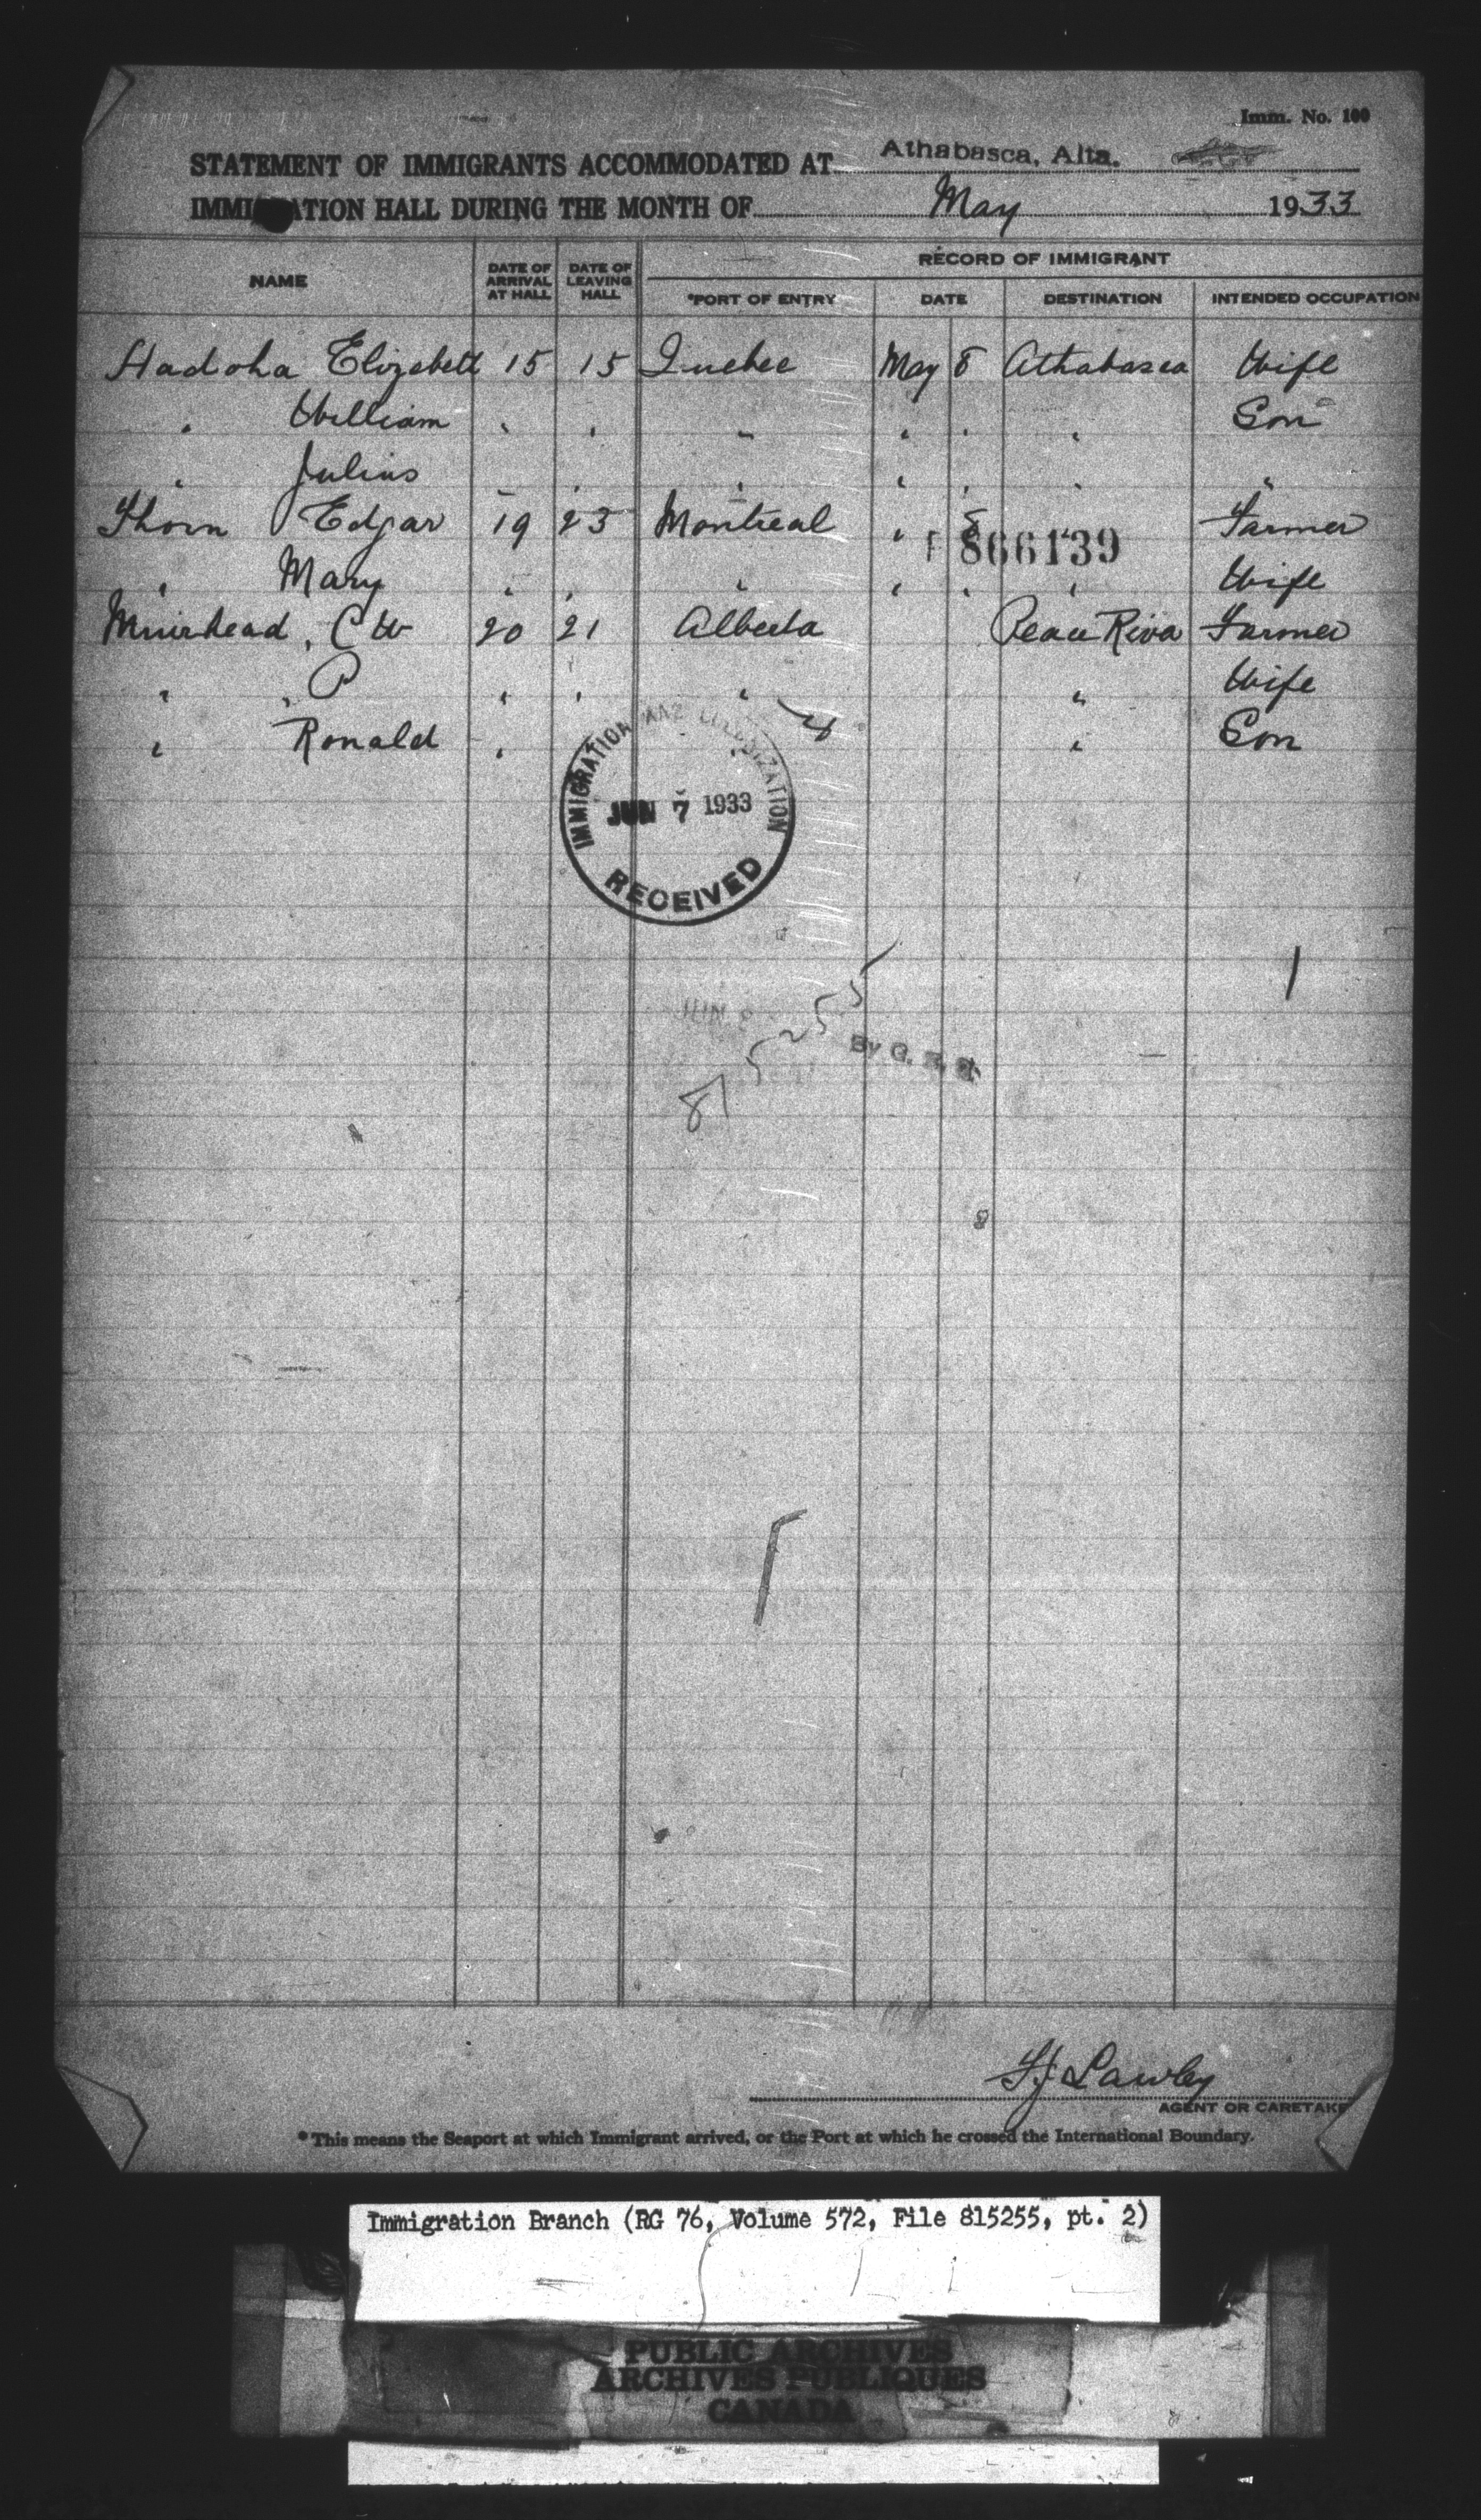 Imm. No. 100
STATEMENT OF IMMIGRANTS ACCOMMODATED AT Athabasca, Alta.
IMMIGRATION HALL DURING THE MONTH OF May 1933
RECORD OF IMMIGRANT
NAME DATE OF ARRIVAL AT HALL DATE OF LEAVING HALL *PORT OF ENTRY DATE DESTINATION INTENDED OCCUPATION
Hadoha Elizabeth 15 15 Quebec May 8 Athabasca Wife
" William " " " " " " Son
" Julius " " " " " " "
Thorn Edgar 19 23 Montreal " 8 Farmer
866139
" Mary " " " " " " Wife
Muirhead, C W 20 21 Alberta Peace River Farmer
" " P " " " " Wife
" Ronald " " " Son
IMMIGRATION AND COLONIZATION
JUN 7 1933
RECEIVED
JUN 8
815255
By G.
F J Lawley
AGENT OR CARETAKE
*This means the Seaport at which Immigrant arrived, or the Port at which he crossed the International Boundary.
Immigration Branch (RG 76, Volume 572, File 815255, pt. 2)
PUBLIC ARCHIVES
ARCHIVES PUBLIQUES
CANADA